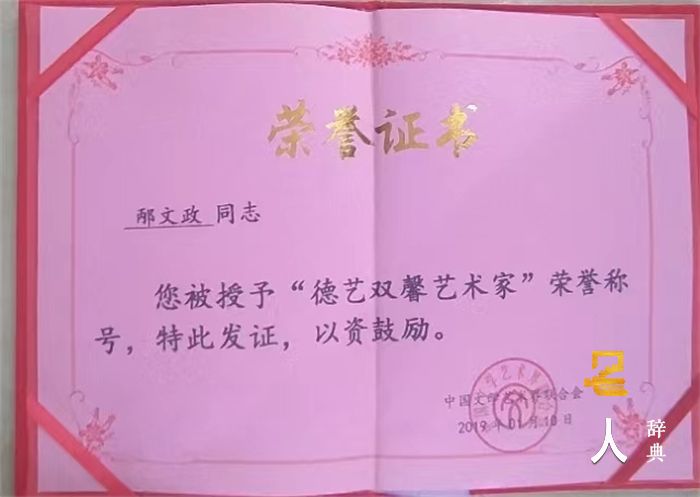 荣誉证书
邴文政 同志
您被授予“德艺双馨艺术家”荣誉称
号，特此发证，以资鼓励。
中国文 艺术界联合会
2019 年 01 月 10 日
人
辞典